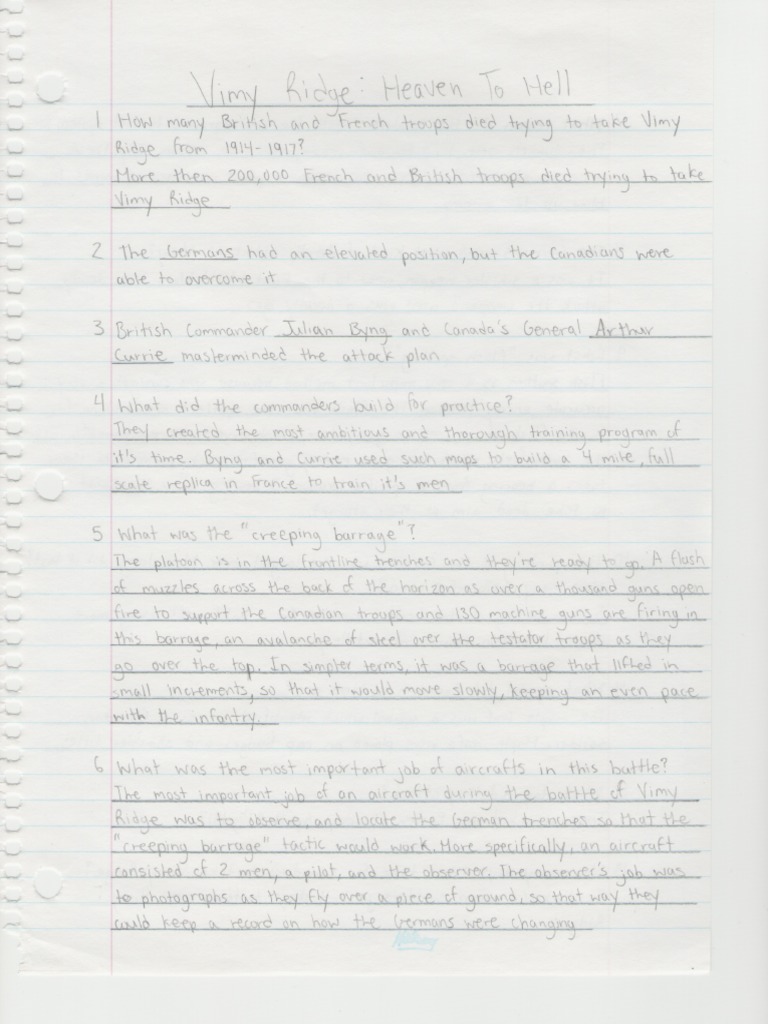 Vimy Ridge: Heaven To Hell
1 How many British and French troops died trying to take Vimy
Ridge from 1914-1917?
More then 200,000 French and British troops died trying to take
Vimy Ridge
2 The Germans had an elevated position, but the Canadians were
able to overcome it
3 British Commander Julian Byng and Canada's General Arthur
Currie masterminded the attack plan
4 What did the commanders build for practice?
They created the most ambitious and thorough training program of
it's time. Byng and Currie used such maps to build a 4 mile, full
scale replica in France to train it's men
5 What was the "creeping barrage"?
The platoon is in the frontline trenches and they're ready to go. A flash
of muzzles across the back of the horizon as over a thousand guns open
fire to support the Canadian troops and 130 machine guns are firing in
this barrage, an avalanche of steel over the testator troops as they
go over the top. In simpler terms, it was a barrage that lifted in
small increments, so that it would move slowly, keeping an even pace
with the infantry.
6 What was the most important job of aircrafts in this battle?
The most important job of an aircraft during the battle of Vimy
Ridge was to observe, and locate the German trenches so that the
"creeping barrage" tactic would work. More specifically, an aircraft
consisted of 2 men, a pilot, and the observer. The observer's job was
to photographs as they fly over a piece of ground, so that way they
could keep a record on how the Germans were changing